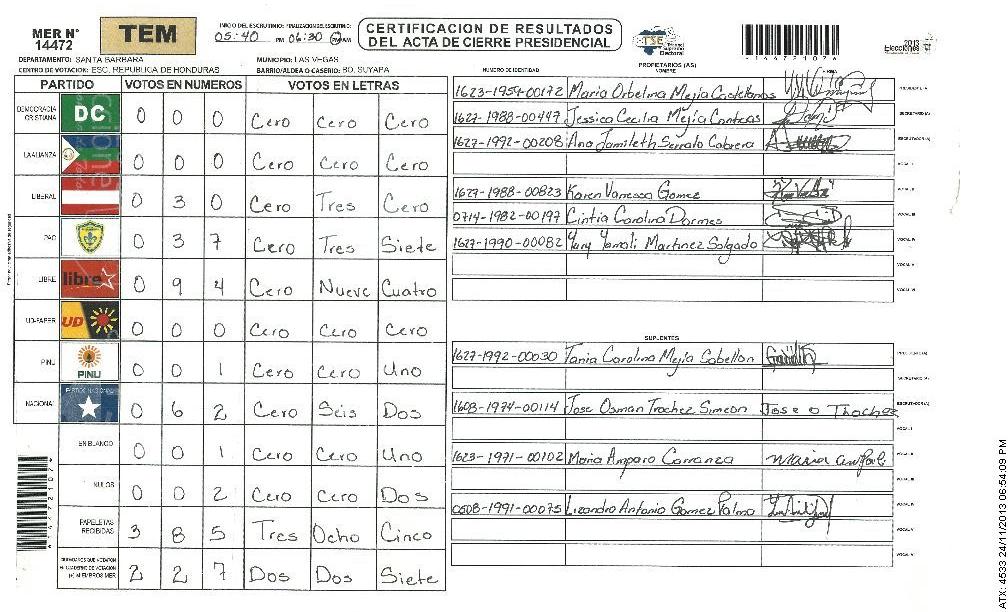 MER N° 14472
TEM
INICIO DEL ESCRUTINIO: FINALIZACION DEL ESCRUTINIO:
05:40 PM 06:30 PM AM
CERTIFICACION DE RESULTADOS
DEL ACTA DE CIERRE PRESIDENCIAL
TSE Tribunal Supremo Electoral
2013 Elecciones
DEPARTAMENTO: SANTA BARBARA MUNICIPIO: LAS VEGAS
CENTRO DE VOTACION: ESC. REPUBLICA DE HONDURAS BARRIO/ALDEA O CASERIO: BO. SUYAPA
PARTIDO VOTOS EN NUMEROS VOTOS EN LETRAS
DEMOCRACIA CRISTIANA DC 0 0 0 Cero Cero Cero
LA ALIANZA 0 0 0 Cero Cero Cero
LIBERAL 0 3 0 Cero Tres Cero
PAC 0 3 7 Cero Tres Siete
LIBRE libre 0 9 4 Cero Nueve Cuatro
UD-FAPER UD 0 0 0 Cero Cero Cero
PINU PINU 0 0 1 Cero Cero Uno
NACIONAL 0 6 2 Cero Seis Dos
EN BLANCO 0 0 1 Cero Cero Uno
NULOS 0 0 2 Cero Cero Dos
PAPELETAS RECIBIDAS 3 8 5 Tres Ocho Cinco
CIUDADANOS QUE VOTARON S/ CUADERNO DE VOTACION (+) MIEMBROS MER 2 2 7 Dos Dos Siete
PROPIETARIOS (AS)
NUMERO DE IDENTIDAD NOMBRE FIRMA
1623-1954-00172 Maria Orbelina Mejia Castellanos PRESIDENTE/A
1627-1988-00447 Jessica Cecilia Mejia Contreras SECRETARIO (A)
1627-1992-00208 Ana Jamileth Serrato Cabrera ESCRUTADOR (A)
VOCAL I
1627-1988-00823 Karen Vanessa Gomez VOCAL II
0714-1982-00197 Cintia Carolina Dormes VOCAL III
1627-1990-00082 Yury Yamali Martinez Salgado VOCAL IV
VOCAL V
VOCAL VI
SUPLENTES
1627-1992-00030 Tania Carolina Mejia Sabellon PRESIDENTE(A)
SECRETARIO (A)
1608-1974-00114 Jose Osman Trochez Simeon Jose O Trochez ESCRUTADOR (A)
VOCAL I
1623-1971-00102 Maria Amparo Carranza VOCAL II
VOCAL III
0508-1991-00075 Lizandro Antonio Gomez Palma VOCAL IV
VOCAL V
VOCAL VI
ATX: 4533 24/11/2013 06:54:09 PM